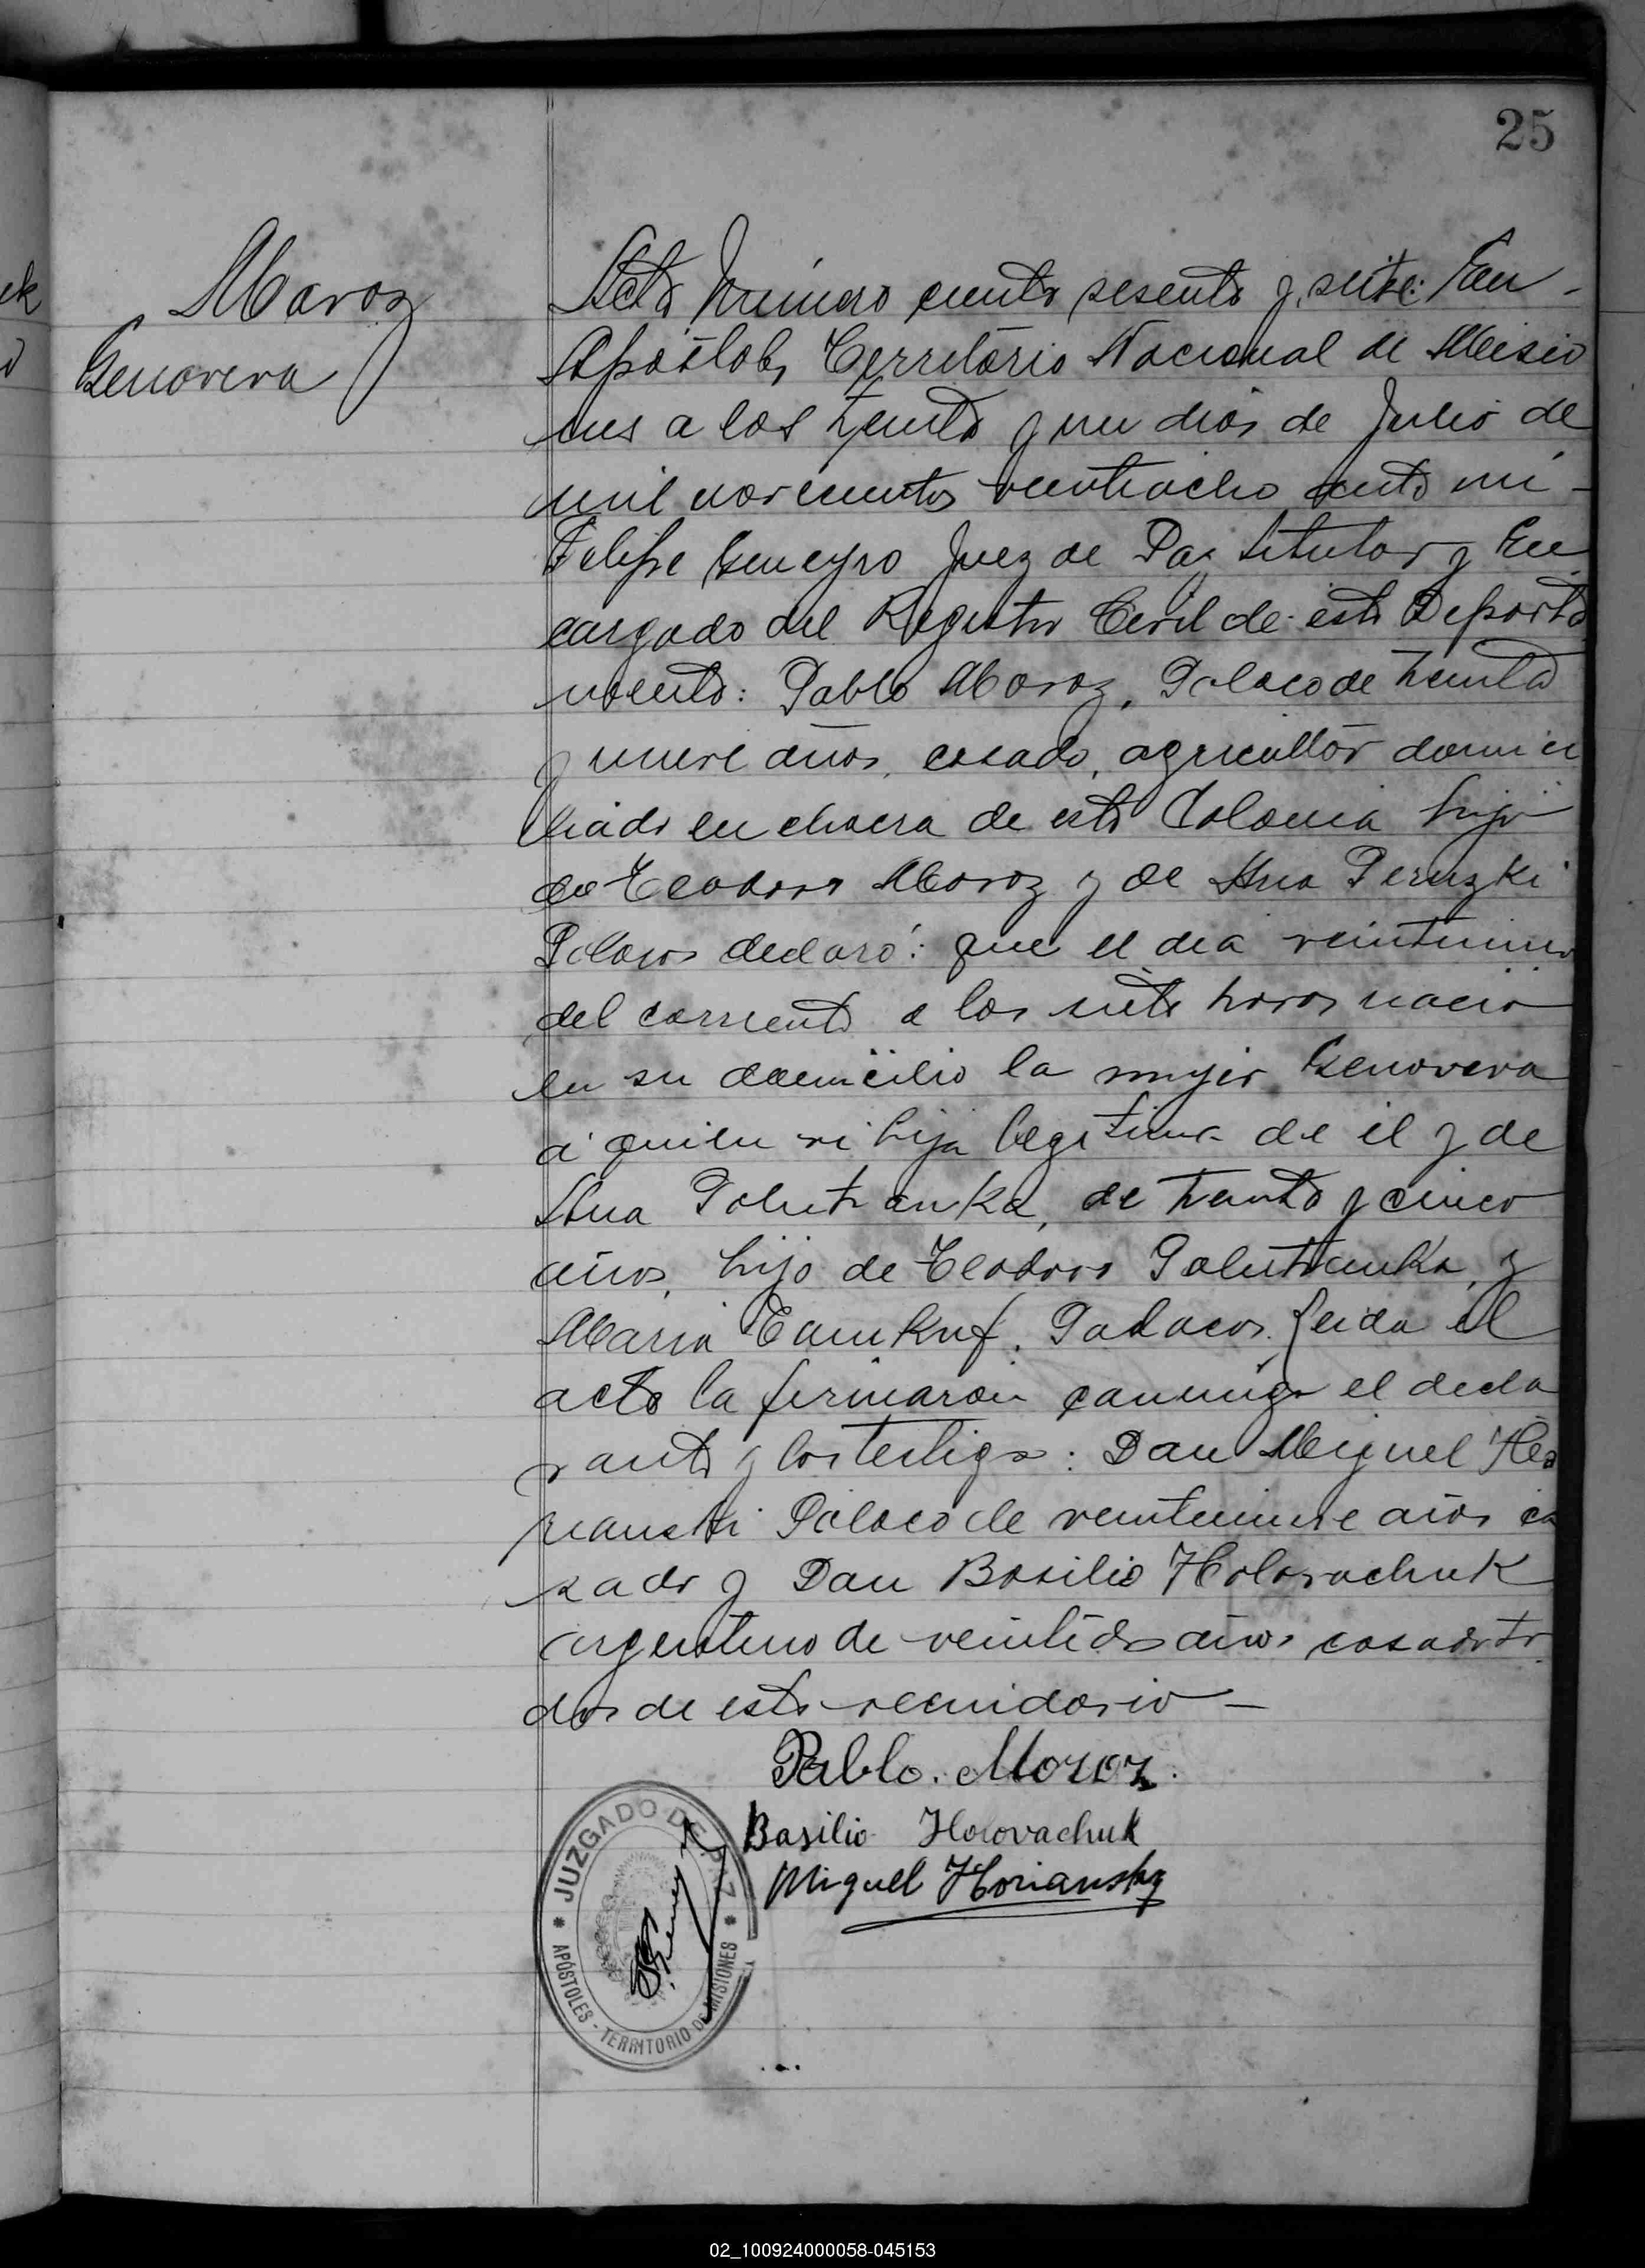 25
Moroz
Genoveva
Acta número ciento sesenta y siete: En
Apóstoles, Territorio Nacional de Misio
nes a los treinta y un dias de Julio de
mil novecientos veintiocho ante mi
Felipe Geneyro Juez de Paz titular y En
cargado del Registro Civil de este Departa
mento: Pablo Moroz, Polaco de treinta
y nueve años, casado, agricultor domici
liado en chacra de esta Colonia hijo
de Teodoro Moroz y de Ana
Polacos declaró: que el dia veintinueve
del corriente a las siete horas nació
en su domicilio la mujer Genoveva
a quien vi hija legitima de él y de
Ana Polutranka, de treinta y cinco
años, hija de Teodoro Polutranka, y
Maria Polacos. Leida el
acta la firmaron conmigo el decla
rante y los testigos: Don Miguel Ho
rianski Polaco de veintinueve años ca
sado y Don Basilio Holovachuk
argentino de veintidos años casado to
dos de este vecindario —
Pablo. Moroz.
Basilio Holovachuk
Miguel Horiansky
JUZGADO DE PAZ
APÓSTOLES - TERRITORIO DE MISIONES
02_100924000058-045153